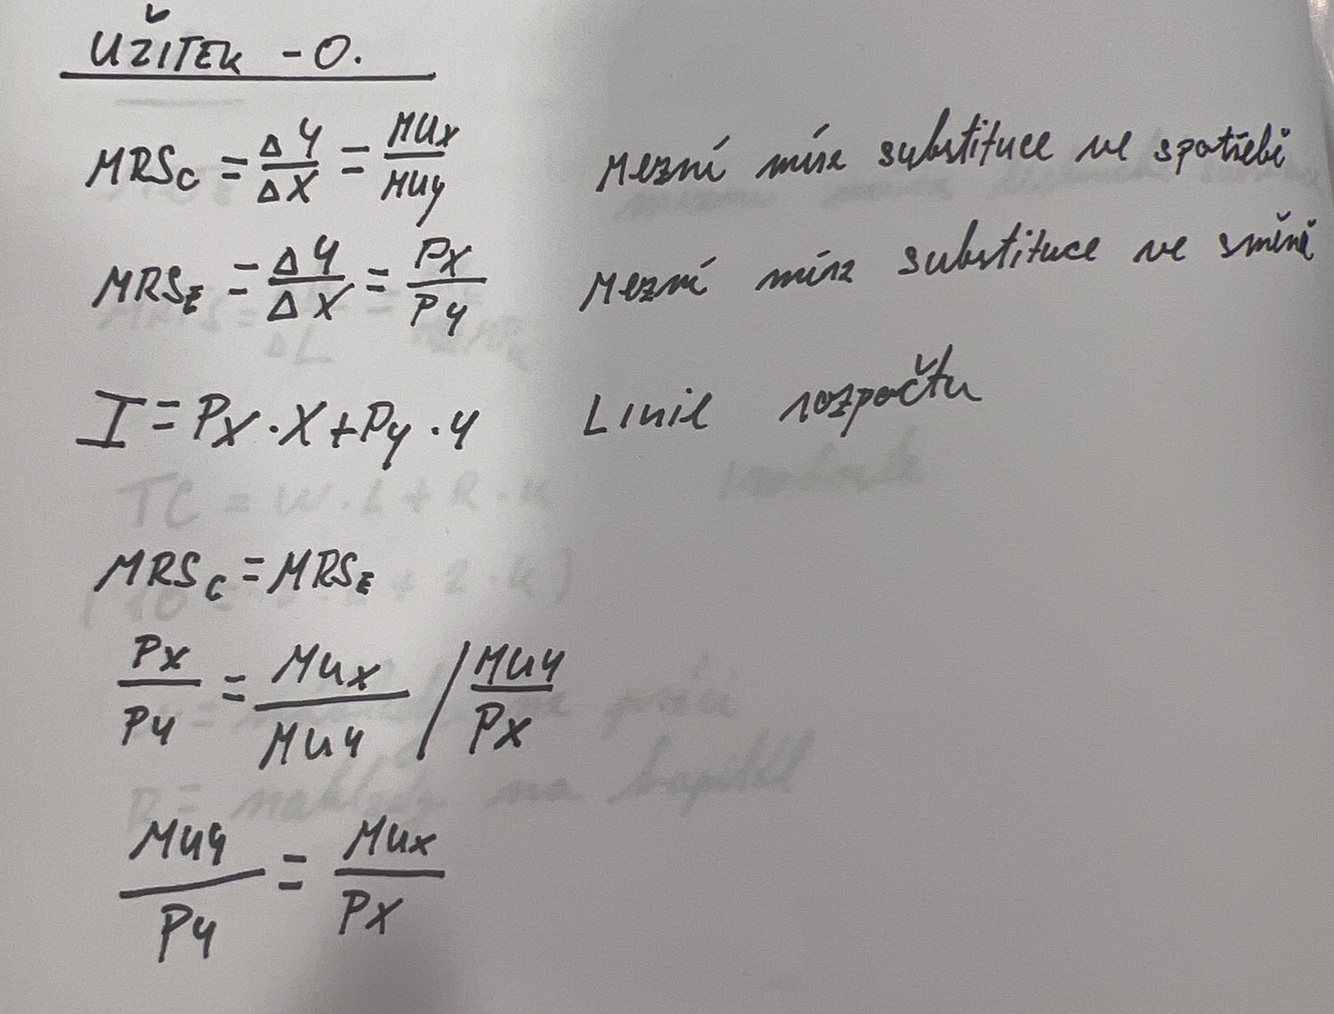 UŽITEK - O.
MRSc = ΔY/ΔX = MUx/MUy Mezní míra substituce ve spotřebě
MRSE = ΔY/ΔX = Px/Py Mezní míra substituce ve směně
I = Px · X + Py · Y Linie rozpočtu
TC = W · L + R · K
MRSc = MRSE
Px/Py = MUx/MUy / MUy/Px
R = náklady na kapitál
MUy/Py = MUx/Px